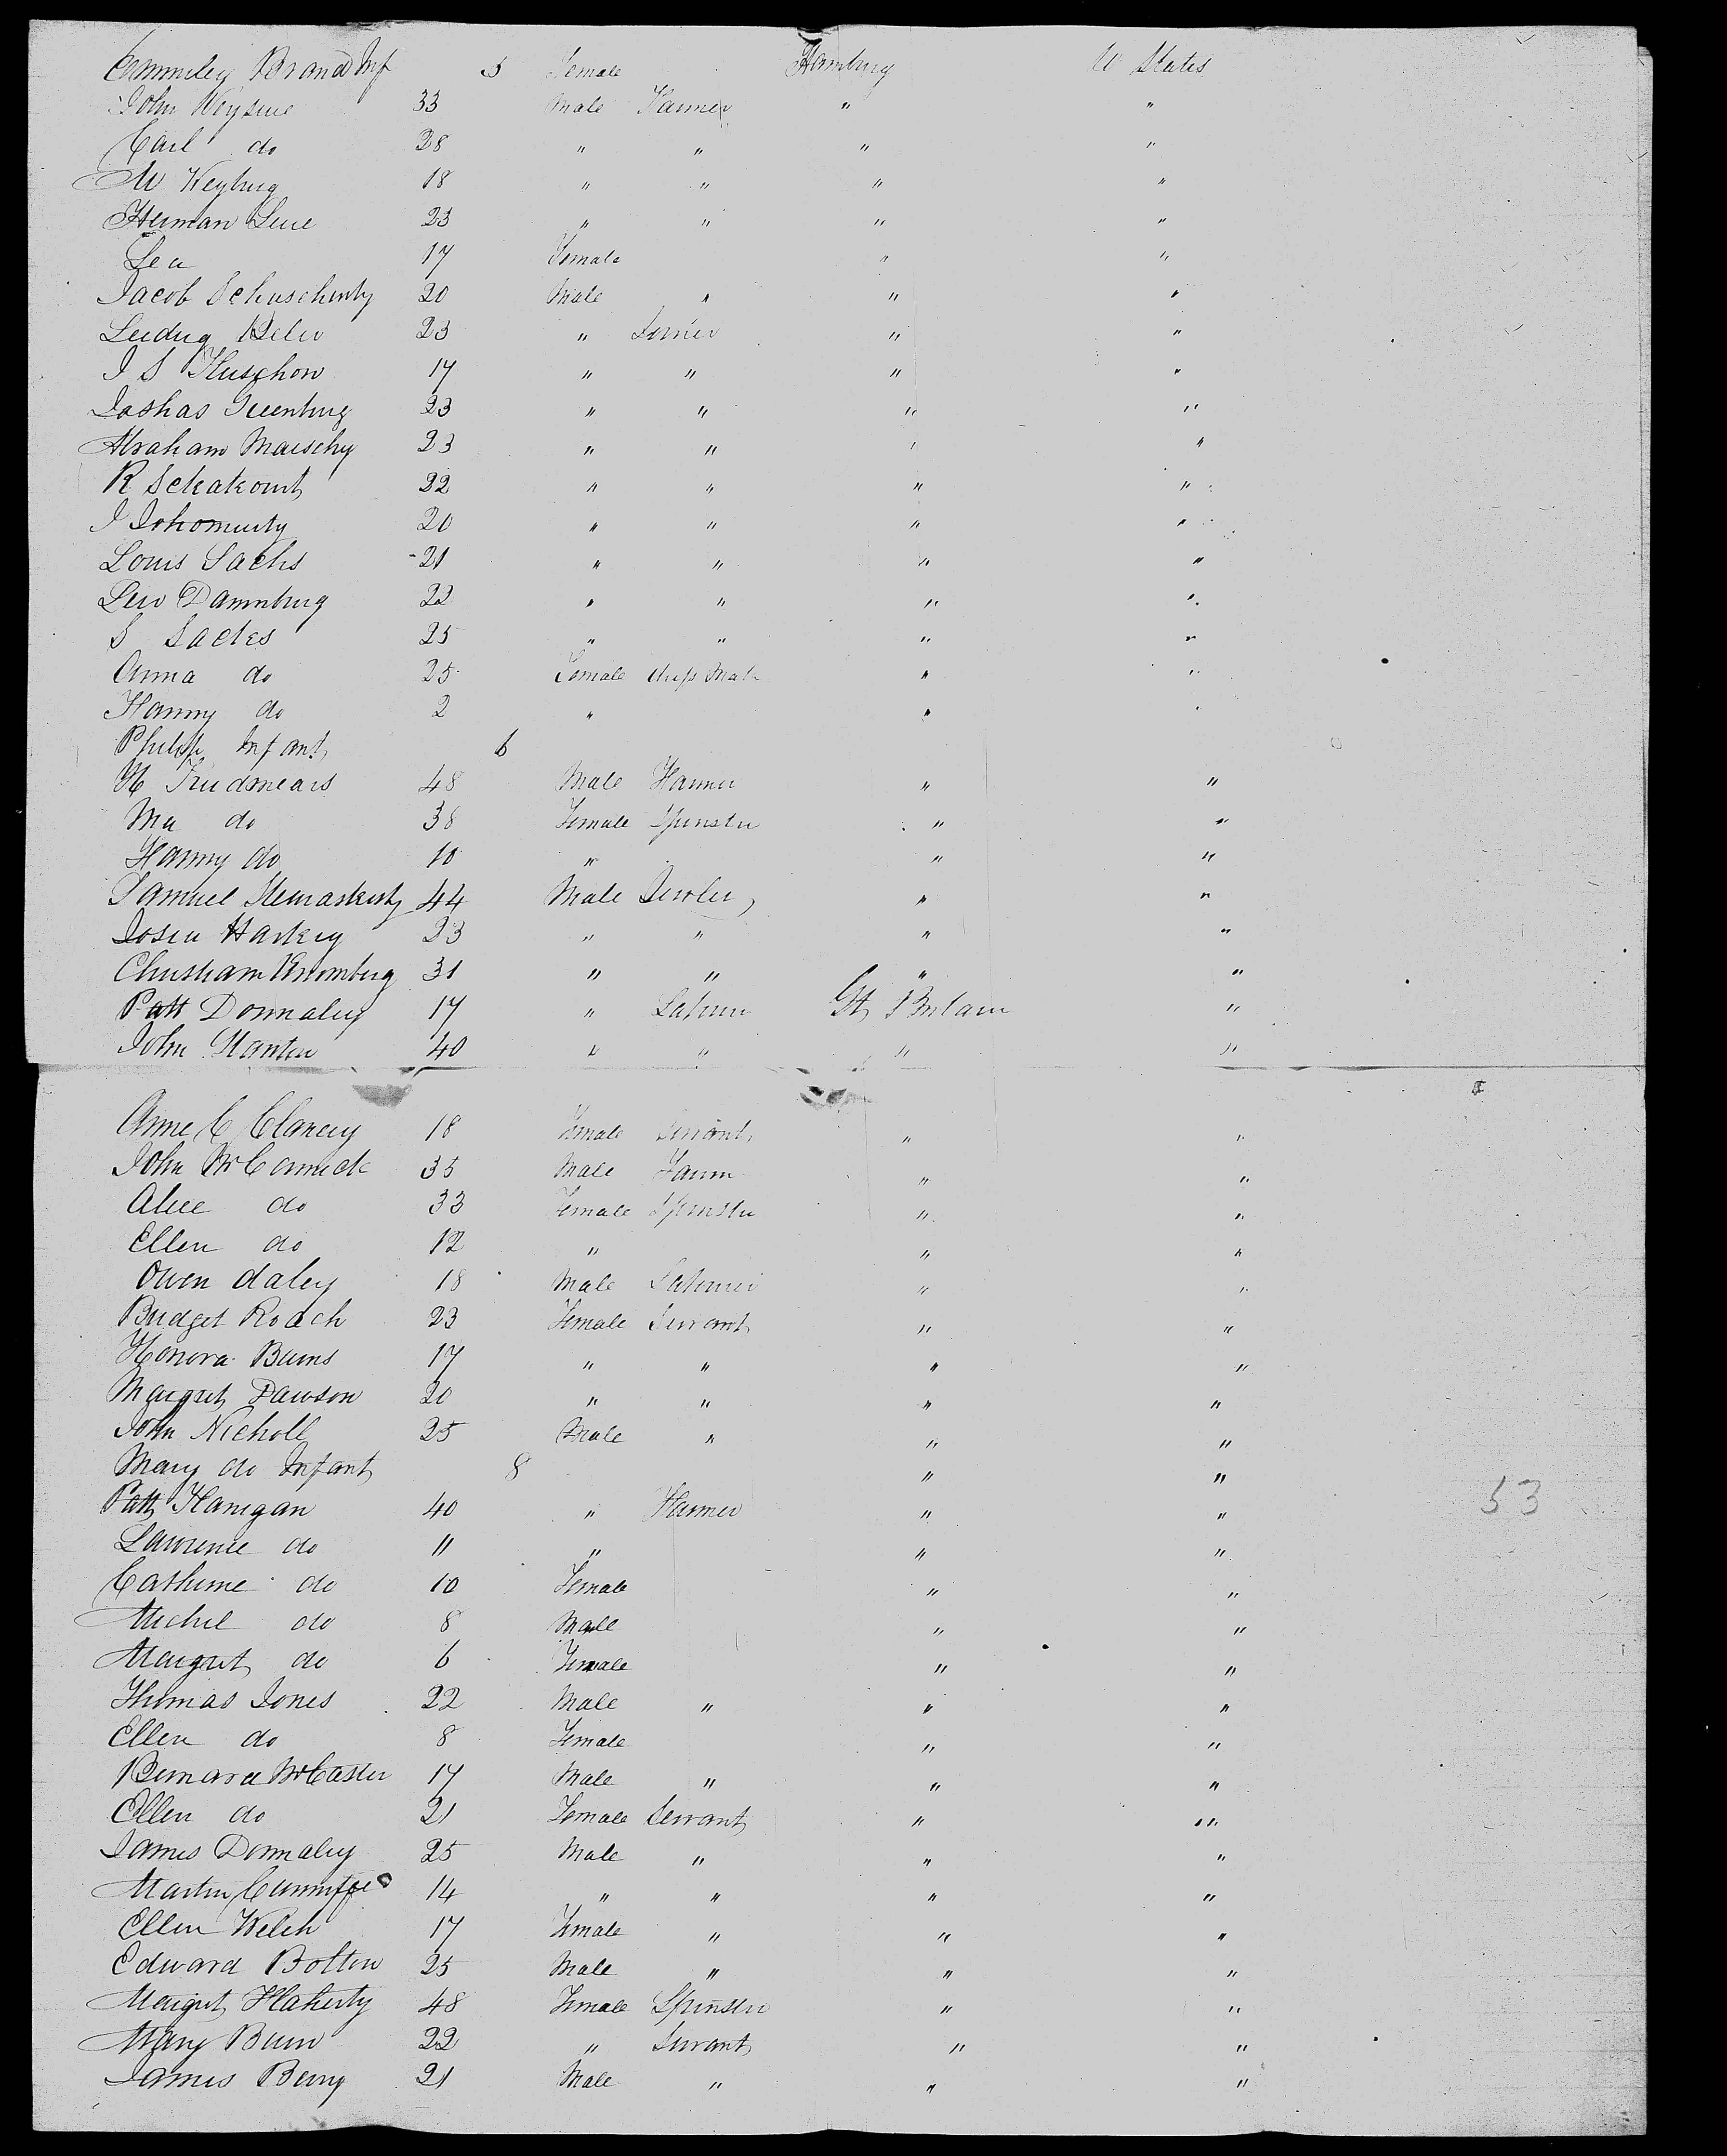 Emmeley Brand Inf 5 Female Hamburg U States
John Weysue 33 Male Farmer " "
Carl do 28 " " " "
M Weyburg 18 " " " "
Herman Leve 23 " " " "
Lea 17 Female " "
Jacob Schuschinty 20 Male " " "
Leidug Beler 23 " " "
I S Fluschow 17 " " " "
Joshas Greenburg 23 " " " "
Abraham Maischy 23 " " " "
R Schakount 22 " " " "
I 20 " " " "
Louis Sachs 21 " " " "
Lew Dannburg 22 " " " "
S Sackes 25 " " " "
Anna do 25 Female " "
Hanny do 2 " " "
Philip Infant 6
H 48 Male Farmer " "
Ma do 38 Female Spinster " "
Hanny do 10 " " "
Samuel 44 Male Jewler " "
Harkey 23 " " " "
Christiam Bromberg 31 " " " "
Patt Donnaley 17 " Laburer Gt Britain "
John Stanton 40 " " " "
Anne C Clancey 18 Female Servant " "
John McCormick 35 Male Farm " "
Alice do 33 Female Spinster " "
Ellen do 12 " " "
Owen daley 18 Male Laburer " "
Bridget Roach 23 Female Servant " "
Honora Burns 17 " " " "
Margret Dawson 20 " " " "
John Nicholl 25 Male " " "
Mary do Infant 8 " "
Patt Flanigan 40 " Farmer " "
53
Lawrence do 11 " " "
Catherine do 10 Female " "
Michel do 8 Male " "
Margret do 6 Female " "
Thomas Jones 22 Male " " "
Ellen do 8 Female " "
Bernard McCaster 17 Male " " "
Ellen do 21 Female Servant " "
James Donnaley 25 Male " " "
Martin Cunniffe 14 " " " "
Ellen Welch 17 Female " " "
Edward Bolton 25 Male " " "
Margret Flaherty 48 Female Spinster " "
Mary Burn 22 " Servant " "
James Berry 21 Male " " "